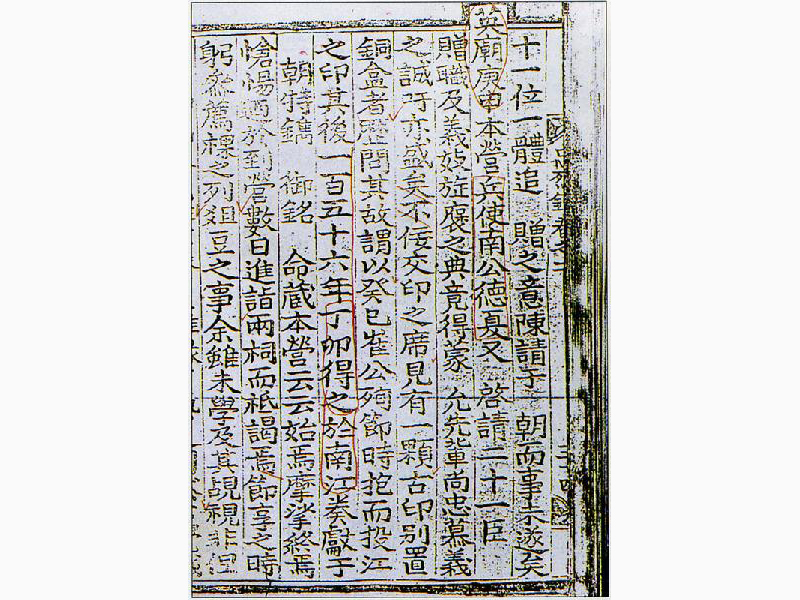 十一位一體追 贈之意陳請于 朝而事未遂矣
英廟庚申本營兵使南公德夏又 啓請二十一臣
贈職及義妓旌褒之典竟得蒙 允先輩尚忠慕義
之誠吁亦盛矣不佞交印之席見有一顆古印別置
銅盒者歷問其故謂以癸巳崔公殉節時抱而投江
之印其後一百五十六年丁卯得之於南江奏獻于
朝特鐫 御銘 命藏本營云云始焉摩挲終焉
愴惕逈於到營數日進詣兩祠而祗謁焉節享之時
躬叅薦祼之列俎豆之事余雖未學及其覩視非但